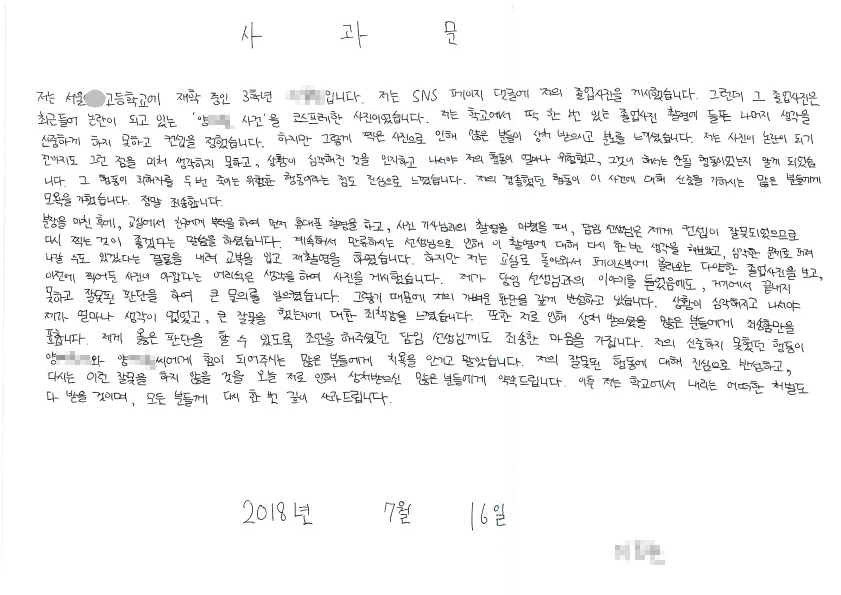 사 과 문
저는 서울 고등학교에 재학 중인 3학년 입니다. 저는 SNS 페이지 댓글에 저의 졸업사진을 게시했습니다. 그런데 그 졸업사진은
최근들어 논란이 되고 있는 '양 사건'을 코스프레한 사진이었습니다. 저는 학교에서 딱 한 번 있는 졸업사진 촬영에 들뜬 나머지 생각을
신중하게 하지 못하고 컨셉을 정했습니다. 하지만 그렇게 찍은 사진으로 인해 많은 분들이 상처 받으시고 분노를 느끼셨습니다. 저는 사진이 논란이 되기
전까지도 그런 점을 미처 생각하지 못하고, 상황이 심각해진 것을 인지하고 나서야 저의 행동이 얼마나 위험했고, 그것이 해서는 안될 행동이었는지 알게 되었습
니다. 그 행동이 피해자를 두 번 죽이는 위험한 행동이라는 점도 진심으로 느꼈습니다. 저의 경솔했던 행동이 이 사건에 대해 신중을 가하시는 많은 분들에게
모욕을 가했습니다. 정말 죄송합니다.
분장을 마친 후에, 교실에서 친구에게 부탁을 하여 먼저 휴대폰 촬영을 하고, 사진 기사님과의 촬영을 마쳤을 때, 담임 선생님은 제게 컨셉이 잘못되었으므로
다시 찍는 것이 좋겠다는 말씀을 하셨습니다. 계속해서 만류하시는 선생님으로 인해 이 촬영에 대해 다시 한 번 생각을 해보았고, 심각한 문제로 퍼져
나갈 수도 있겠다는 결론을 내려 교복을 입고 재촬영을 하였습니다. 하지만 저는 교실로 돌아와서 페이스북에 올라오는 다양한 졸업사진을 보고,
이전에 찍어둔 사진이 아깝다는 어리석은 생각을 하여 사진을 게시했습니다. 제가 담임 선생님과의 이야기를 들었음에도, 거기에서 끝내지
못하고 잘못된 판단을 하여 큰 물의를 일으켰습니다. 그렇기 때문에 저의 가벼운 판단을 깊게 반성하고 있습니다. 상황이 심각해지고 나서야
제가 얼마나 생각이 없었고, 큰 잘못을 했는지에 대한 죄책감을 느꼈습니다. 또한 저로 인해 상처 받으셨을 많은 분들에게 죄송함만을
표합니다. 제게 옳은 판단을 할 수 있도록 조언을 해주셨던 담임 선생님께도 죄송한 마음을 가집니다. 저의 신중하지 못했던 행동이
양 와 양 씨에게 힘이 되어주시는 많은 분들에게 치욕을 안기고 말았습니다. 저의 잘못된 행동에 대해 진심으로 반성하고,
다시는 이런 잘못을 하지 않을 것을 오늘 저로 인해 상처받으신 많은 분들에게 약속드립니다. 이후 저는 학교에서 내리는 어떠한 처벌도
다 받을 것이며, 모든 분들께 다시 한 번 깊이 사과드립니다.
2018년 7월 16일